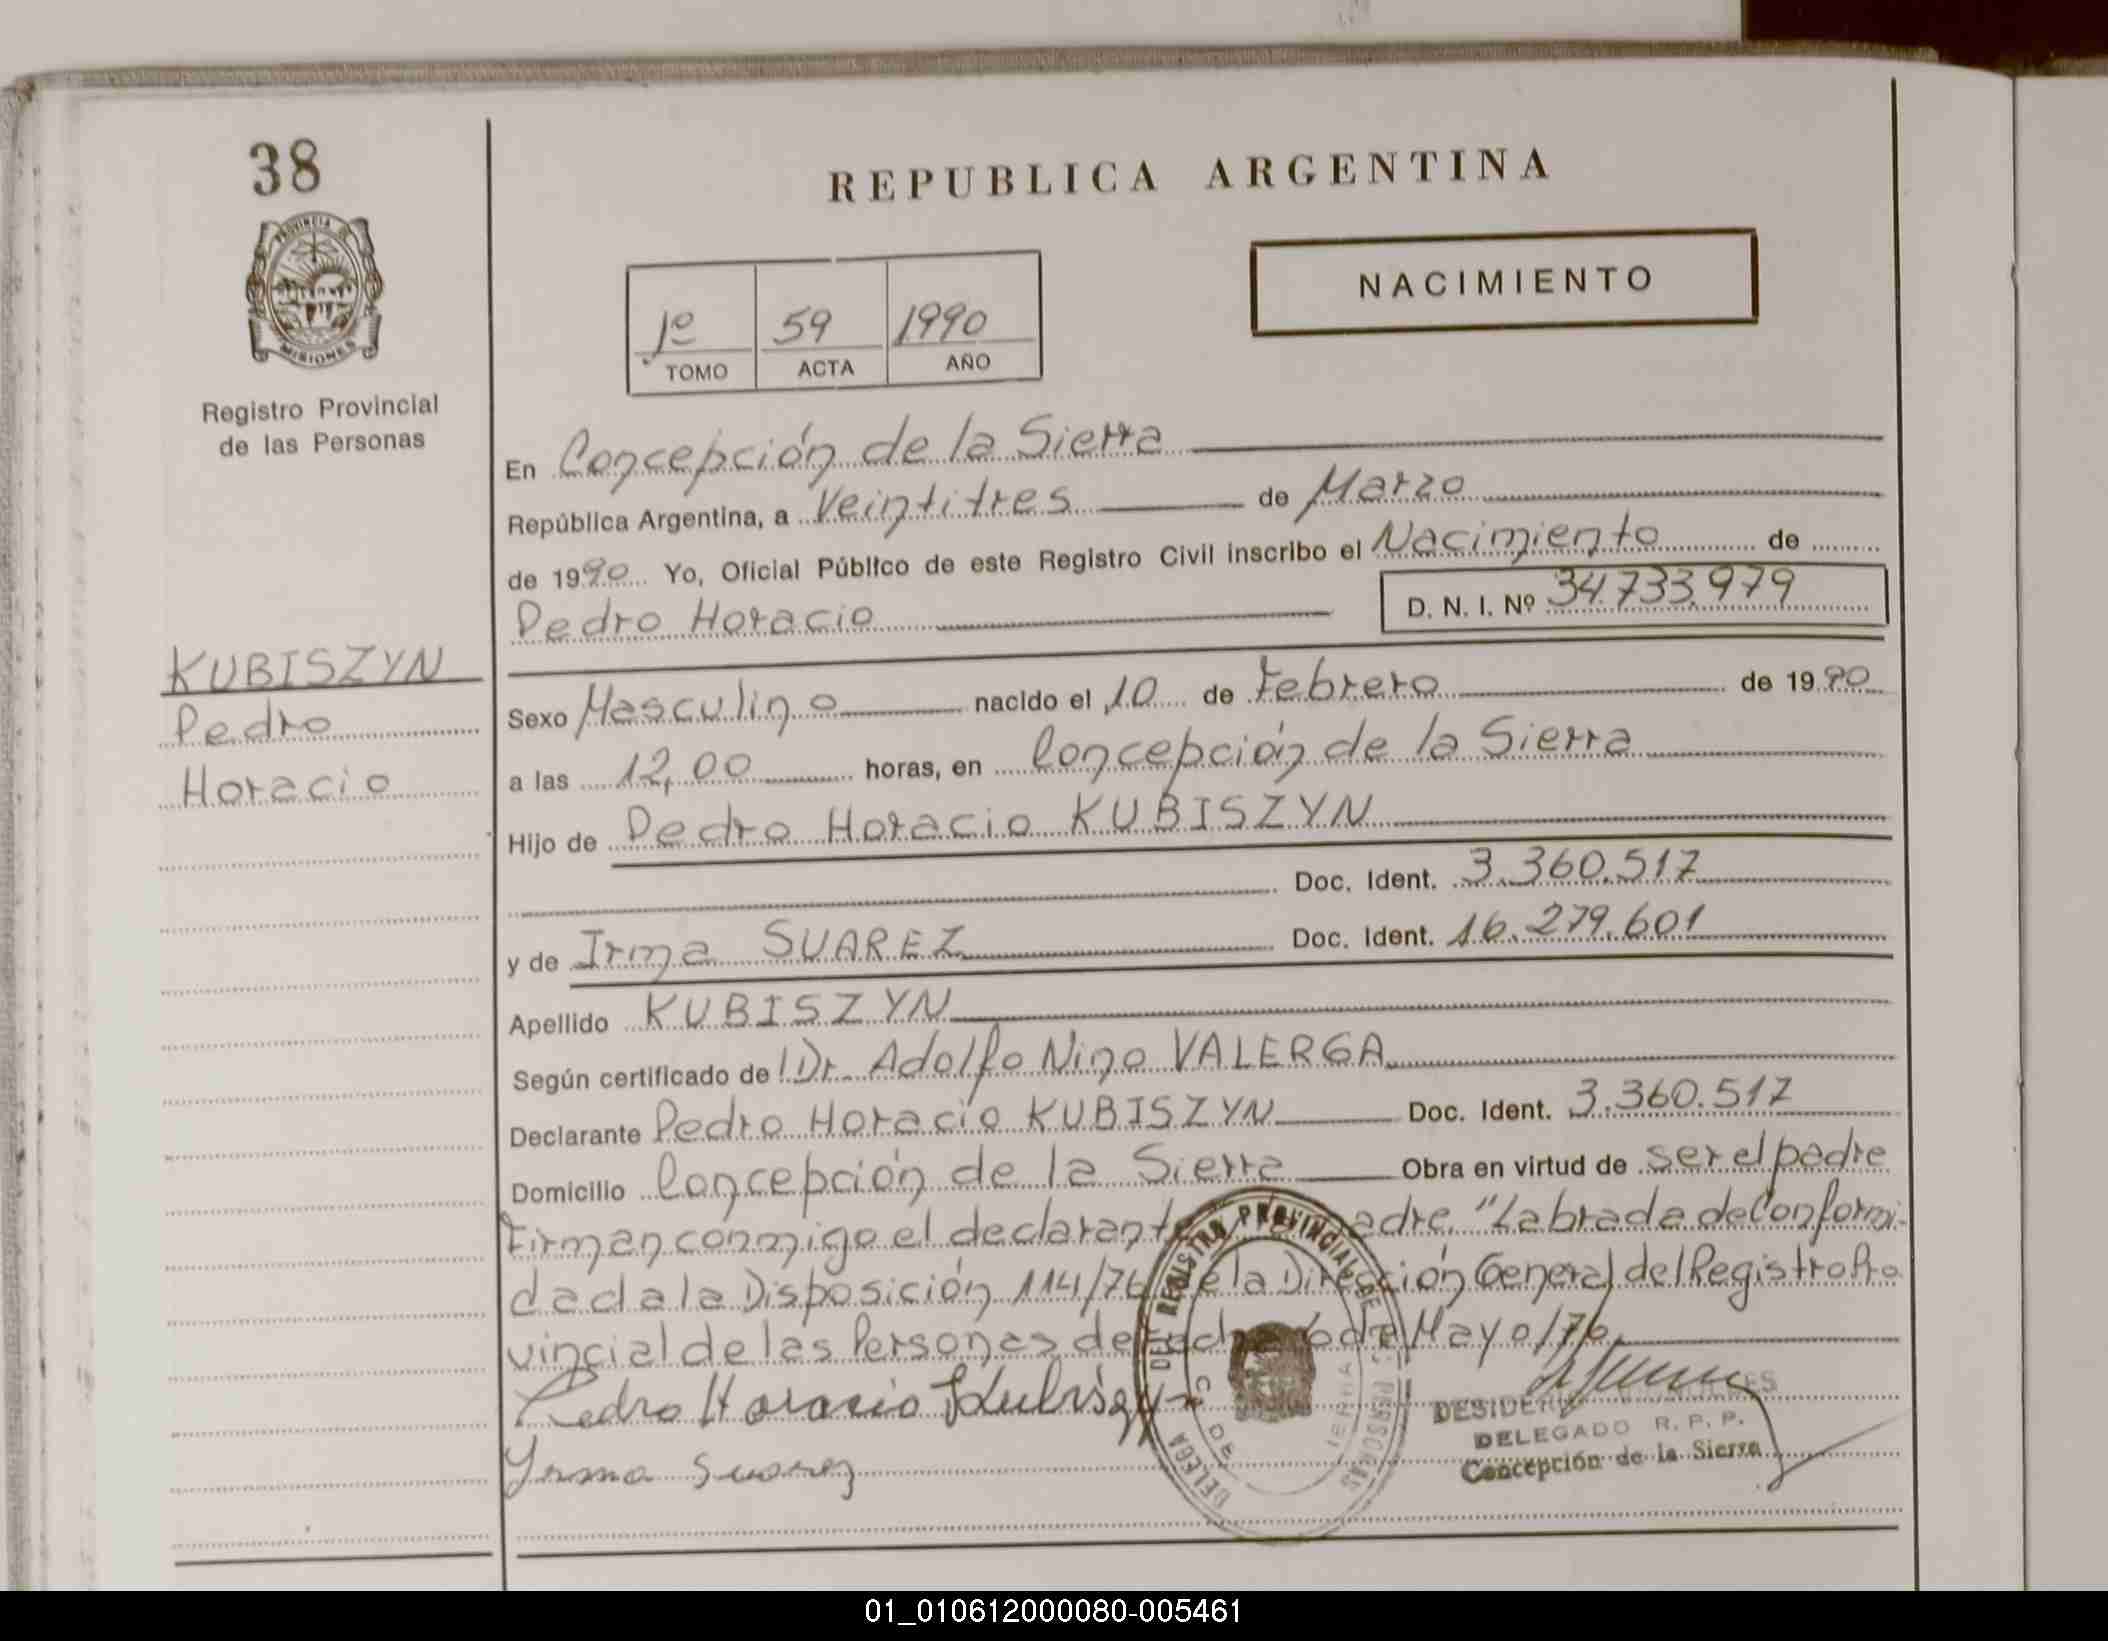 38
PROVINCIA DE
MISIONES
Registro Provincial
de las Personas
KUBISZYN
Pedro
Horacio
REPUBLICA ARGENTINA
NACIMIENTO
1º 59 1990
TOMO ACTA AÑO
En Concepción de la Sierra
República Argentina, a Veintitres de Marzo
de 1990 Yo, Oficial Público de este Registro Civil inscribo el Nacimiento de
Pedro Horacio D. N. I. Nº 34.733.979
Sexo Masculino nacido el 10 de Febrero de 1990
a las 12,00 horas, en Concepción de la Sierra
Hijo de Pedro Horacio KUBISZYN
Doc. Ident. 3.360.517
y de Irma SUAREZ Doc. Ident. 16.279.601
Apellido KUBISZYN
Según certificado de Dr. Adolfo Nino VALERGA
Declarante Pedro Horacio KUBISZYN Doc. Ident. 3.360.517
Domicilio Concepción de la Sierra Obra en virtud de ser el padre
Firman conmigo el declarante madre. "Labrada de Conformi-
dad a la Disposición 114/76 de la Dirección General del Registro Pro
vincial de las Personas de fecha de Mayo/76.
Pedro Horacio Kubiszyn
Yrma Suarez
REGISTRO PROVINCIAL DE
PERSONAS
DELEGADO R. P. P.
Concepción de la Sierra
01_010612000080-005461